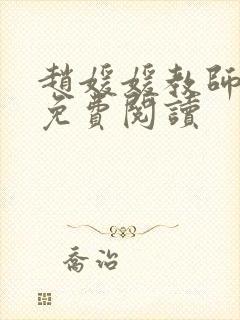 趙媛媛教師
免費閱讀
喬治